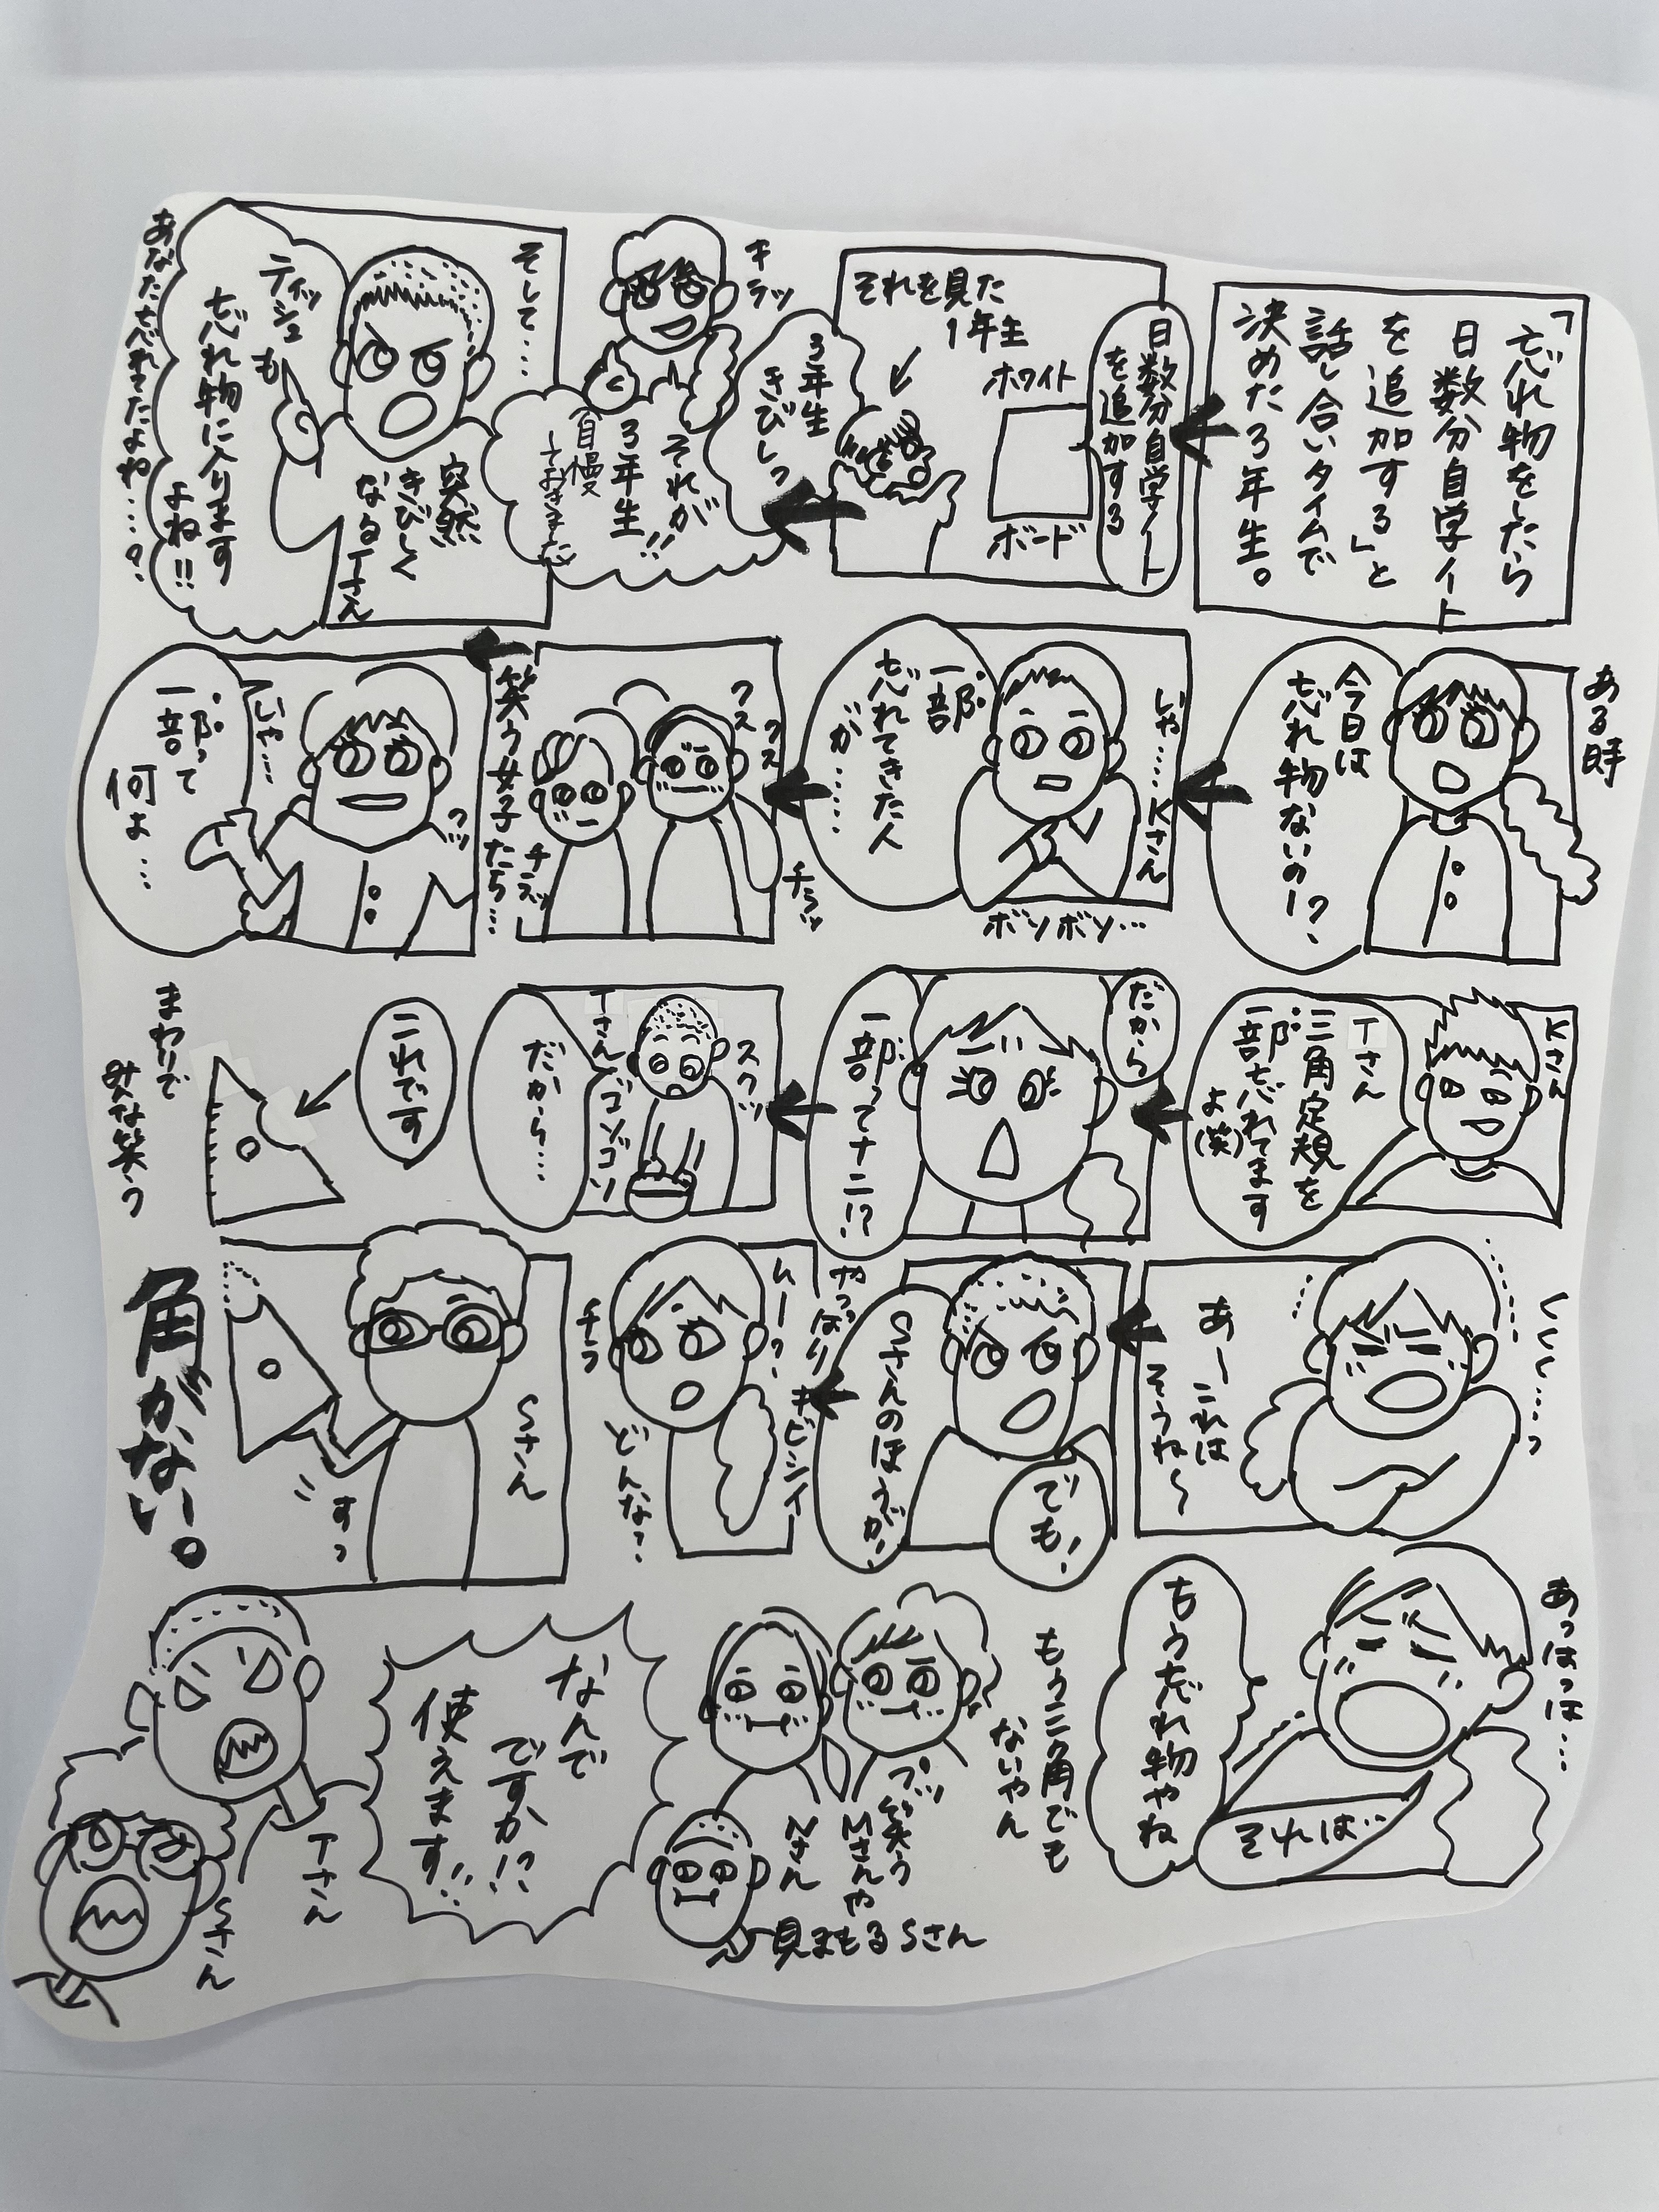 「忘れ物をしたら
日数分自学ノート
を追加する」と
話し合いタイムで
決めた3年生。
日数分自学ノート
を追加する
それを見た
1年生
ホワイト
ボード
3年生
きびしっ
キラッ
それが
3年生!!
自慢
そして…
突然
きびしく
なるTさん
ティッシュも
忘れ物に入ります
よね!!
あなた忘れてたよね…?
ある時
今日は
忘れ物ないのー?
いや……Kさん
一部
忘れてきた人
が……
ボソボソ…
クスクス
チラッ
チラッ
笑う女子たち…
いや…
一部って
何よ…
Kさん
Tさん
三角定規を
一部忘れてます
よ(笑)
だから
一部ってナニ!?
スクッ
Tさんゴソゴソ
だから…
これです
まわりで
みな笑う
くくく…っ
あーこれは
そうね〜
でも!
Sさんのほうが!
やっぱりキビシイ
ムー?
チラ
どんな?
Sさん
すっ
角がない。
あっはっは…
それは…
もう忘れ物やね
もう三角でも
ないやん
プッ笑う
Mさんや
Nさん
見まもるSさん
なんで
ですか!?
使えます!!
Tさん
Sさん